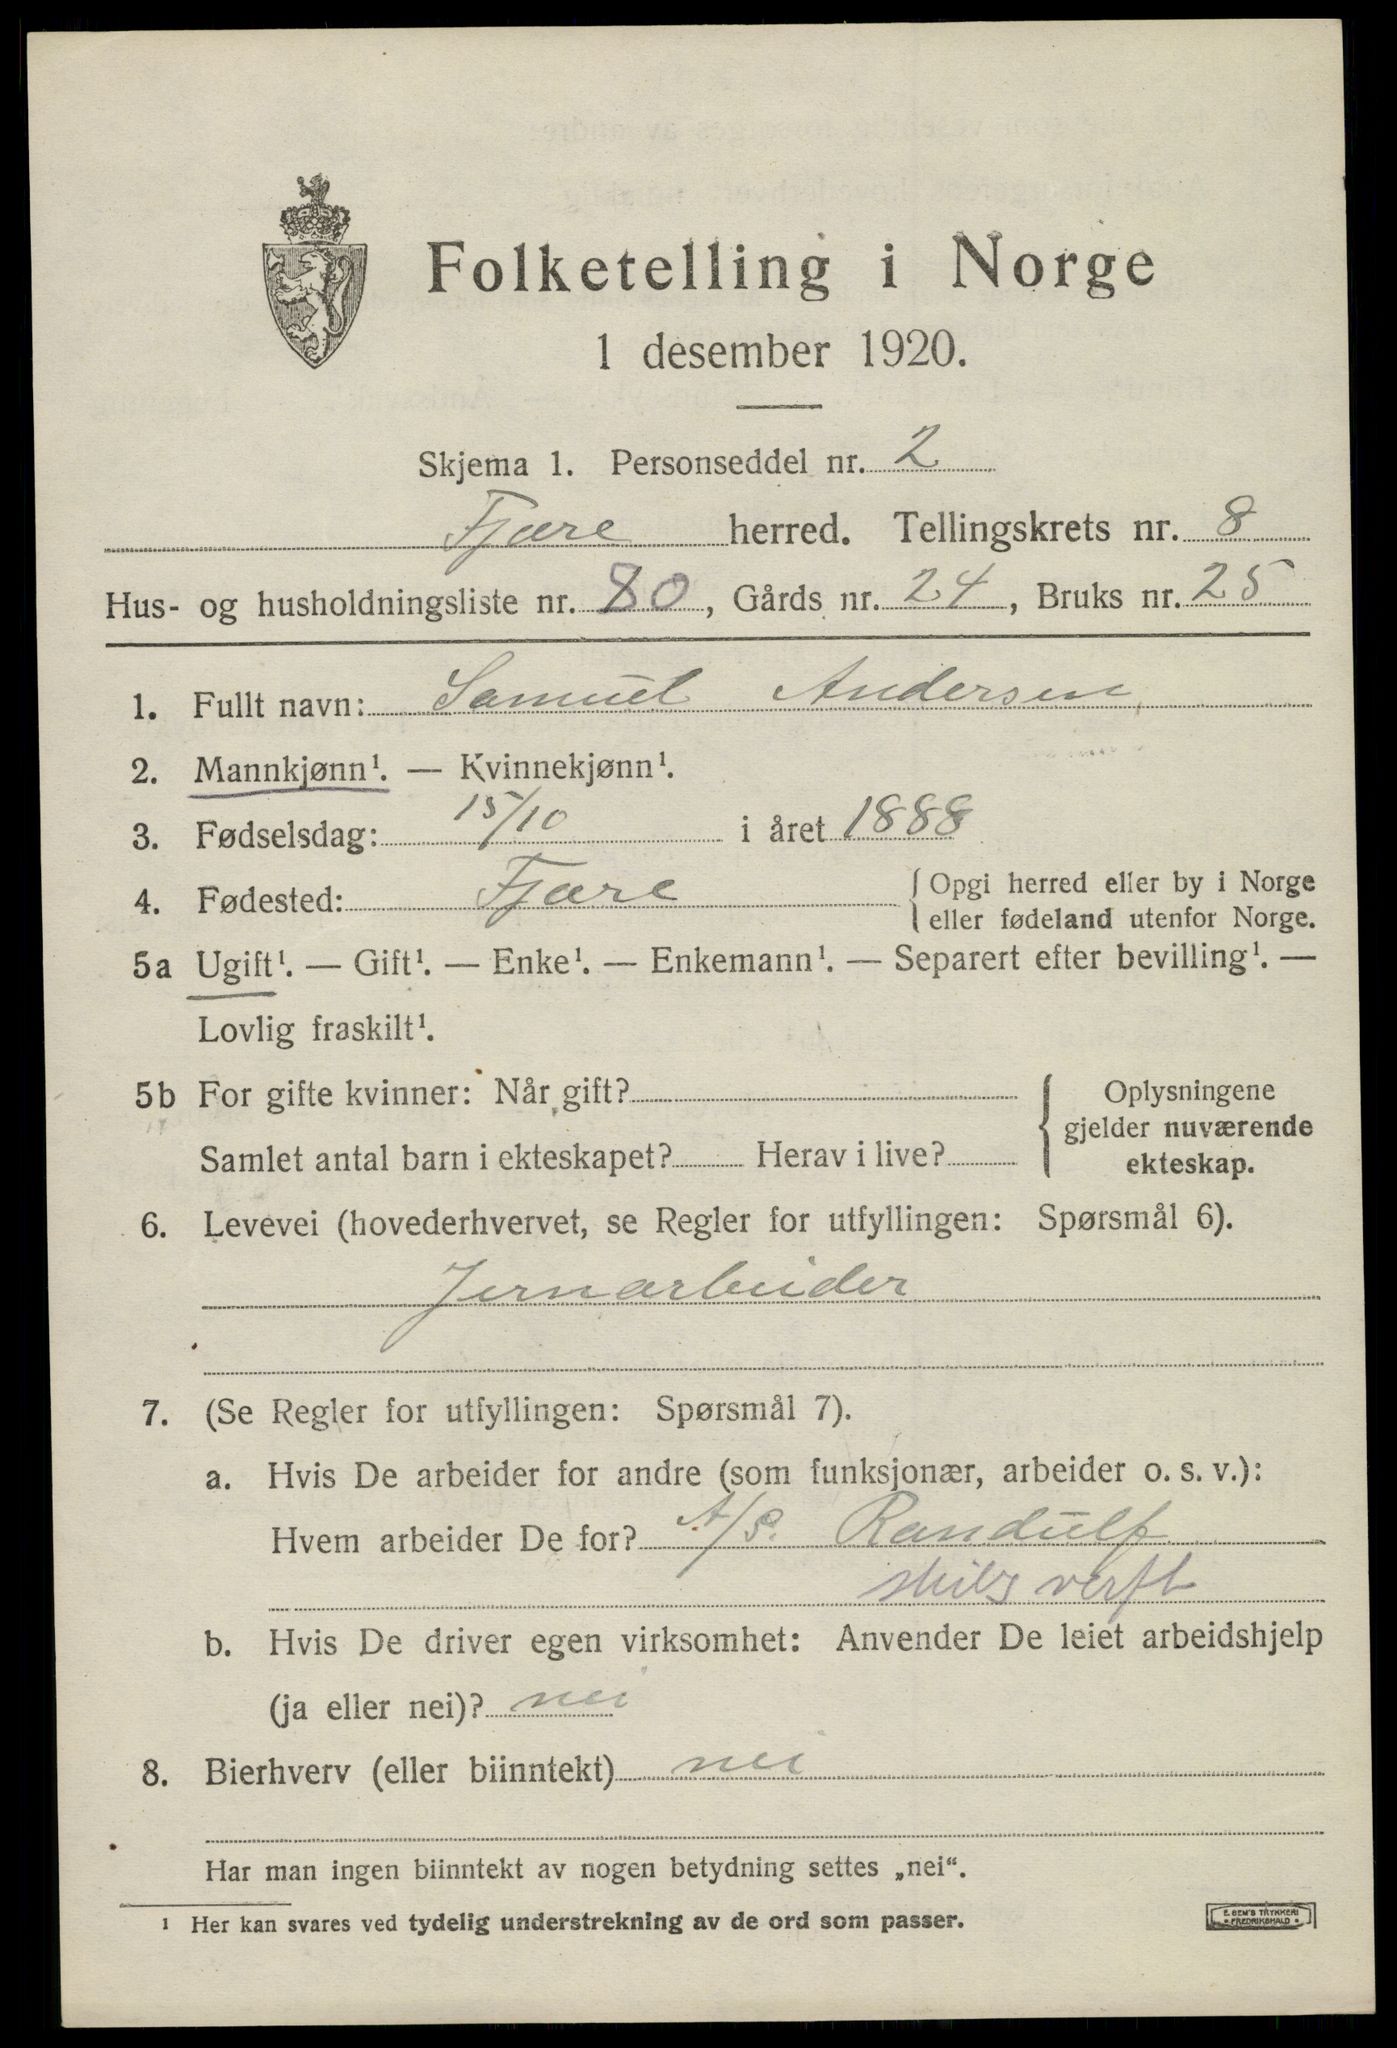 Folketelling i Norge
1 desember 1920.
Skjema 1. Personseddel nr. 2
Fjære herred. Tellingskrets nr. 8
Hus- og husholdningsliste nr. 80, Gårds nr. 24, Bruks nr. 25
1. Fullt navn: Samuel Andersen
2. Mannkjønn¹. — Kvinnekjønn¹.
3. Fødselsdag: 15/10 i året 1888
4. Fødested: Fjære { Opgi herred eller by i Norge
eller fødeland utenfor Norge.
5a Ugift¹. — Gift¹. — Enke¹. — Enkemann¹. — Separert efter bevilling¹. —
Lovlig fraskilt¹.
5b For gifte kvinner: Når gift?
Samlet antal barn i ekteskapet? Herav i live?
{ Oplysningene
gjelder nuværende
ekteskap.
6. Levevei (hovederhvervet, se Regler for utfyllingen: Spørsmål 6).
Jernarbeider
7. (Se Regler for utfyllingen: Spørsmål 7).
a. Hvis De arbeider for andre (som funksjonær, arbeider o. s. v.):
Hvem arbeider De for? A/S. Randulf
verft
b. Hvis De driver egen virksomhet: Anvender De leiet arbeidshjelp
(ja eller nei)? nei
8. Bierhverv (eller biinntekt) nei
Har man ingen biinntekt av nogen betydning settes „nei“.
¹ Her kan svares ved tydelig understrekning av de ord som passer.
E. SEM'S TRYKKERI
FREDRIKSHALD